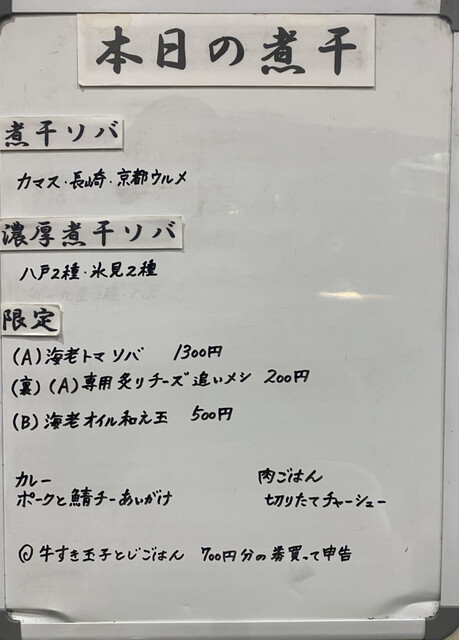 本日の煮干
煮干ソバ
カマス・長崎・京都ウルメ
濃厚煮干ソバ
八戸2種・氷見2種
限定
(A)海老トマソバ 1300円
(裏)(A)専用炙りチーズ追いメシ 200円
(B)海老オイル和え玉 500円
カレー
ポークと鯖チーあいがけ
肉ごはん
切りたてチャーシュー
牛すき玉子とじごはん 700円分の券買って申告